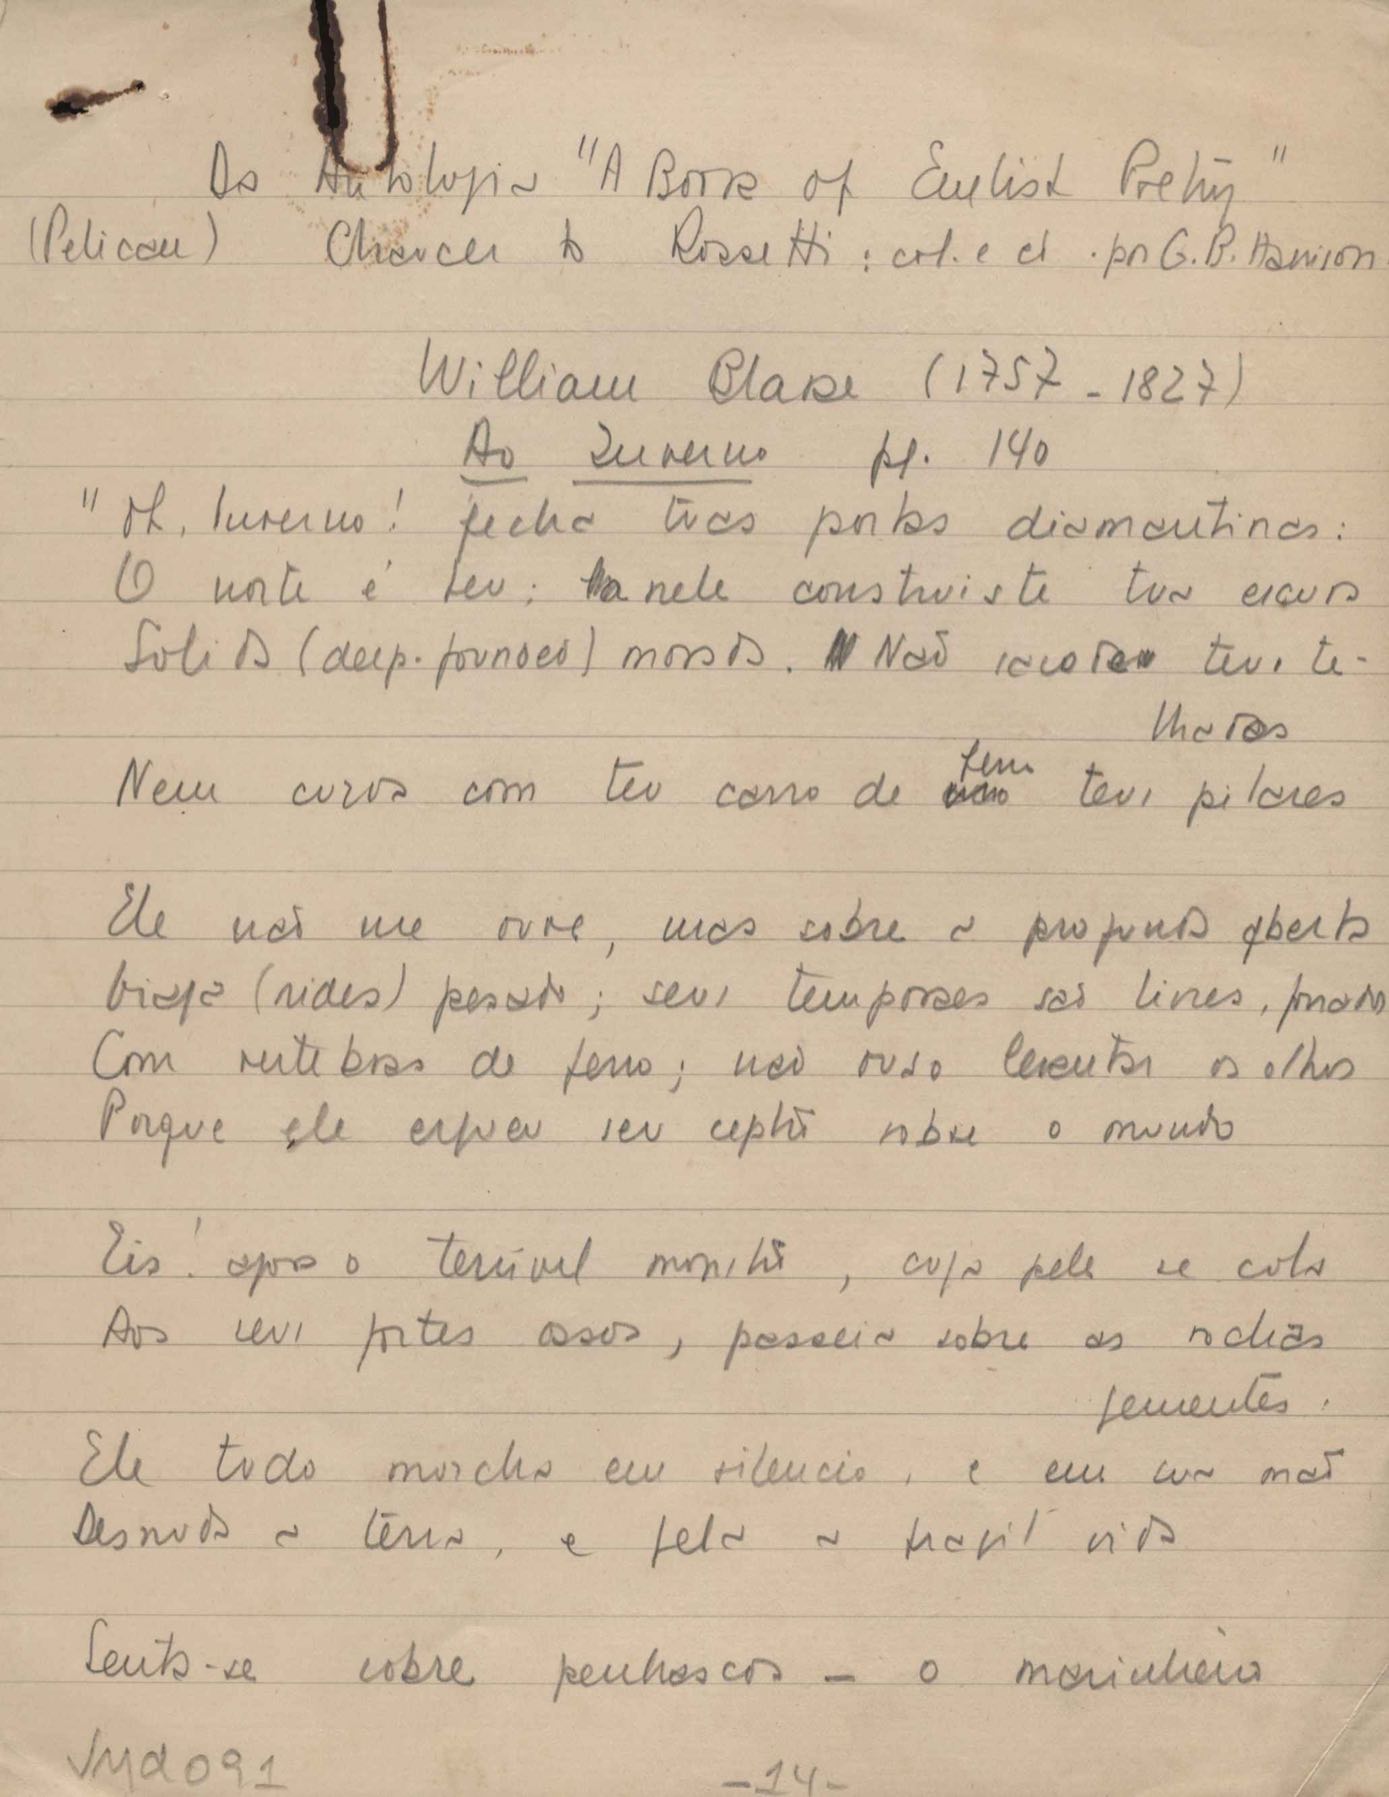 Da Antologia "A Book of English Poetry"
(Pelican) Chaucer to Rossetti: col. e ed. por G. B. Harrison
William Blake (1757 - 1827)
Ao Inverno pg. 140
"Oh, Inverno! fecha tuas portas diamantinas:
O norte é teu; nele construiste tua escura
Solida (deep-founded) morada. Não sacodes teus te-
lhados
Nem curva com teu carro de ferro teus pilares
Ele não me ouve, mas sobre a profunda aberta
Viaja (rides) pesado; seus temporaes são livres,
Com de ferro; não ouso levantar os olhos
Porque ele ergueu seu ceptro sobre o mundo
Eis! agora o terrivel monstro, cuja pele se cola
Aos seus fortes ossos, passeia sobre as rochas
gementes.
Ele tudo murcha em silencio, e em sua mão
Desnuda a terra, e gela a fragil vida
Senta-se sobre penhascos - o marinheiro
Jmd091
-14-